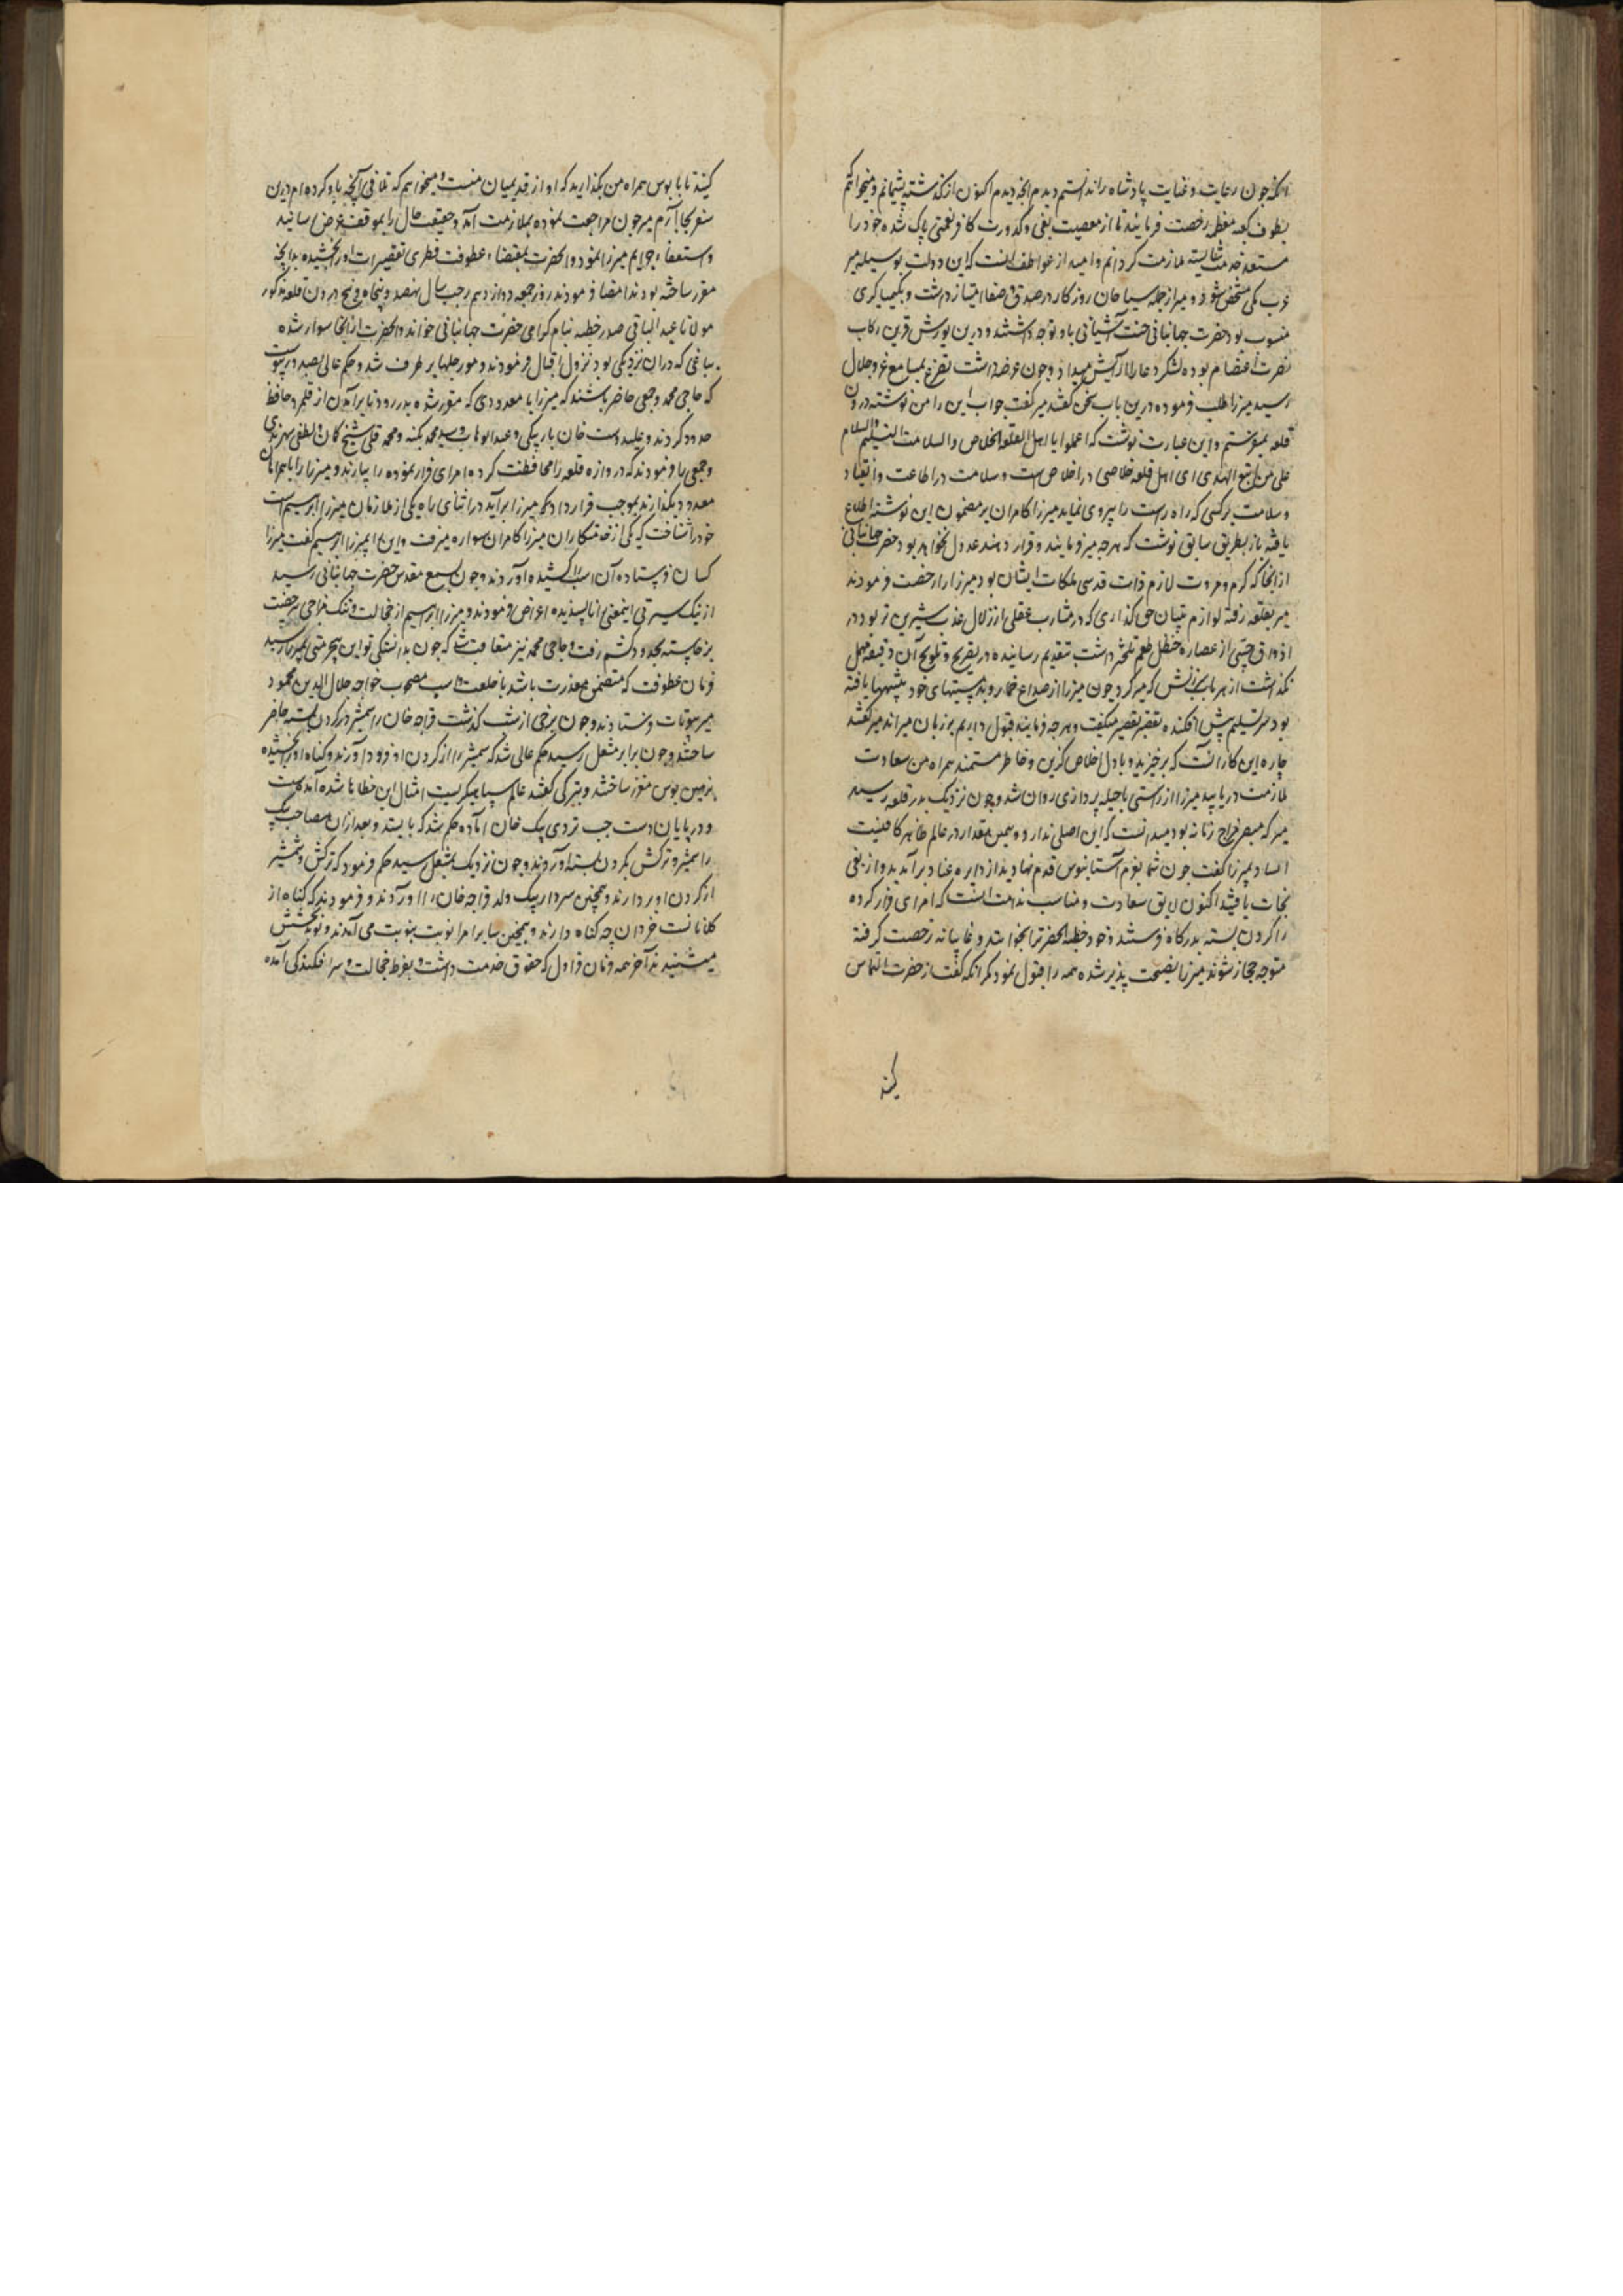 آنکه چون رعایت و عنایت پادشاه را ندانستم دیدم آنچه دیدم اکنون از گذشته پشیمانم و میخواهم
بطوف کعبه معظمه رخصت فرمایند تا از معصیت بغی و کدورت کافر نعمتی پاک شده خود را
مستعد خدمت شایسته ملازمت گردانم و امید از عواطف آنست که این دولت بوسیله میر
عرب مکی مشخص شود و میر از جمله سیاحان روزگار در صدق و صفا امتیاز داشت و بکیمیاگری
منسوب بود حضرت جهانبانی جنت آشیانی باو توجه داشتند و درین یورش قرین رکاب
نصرت اعتصام بوده لشکر دعا را آرایش میداد و چون عرضه داشت تضرع بمسامع عز و جلال
رسید میر را طلب فرموده درین باب سخن گفتند میر گفت جواب این را من نوشته درون
قلعه میفرستم و این عبارت نوشت که اعلموا یا اهل القلعه الخلاص و السلامت التسلیم والسلام
علی من اتبع الهدی ای اهل قلعه خلاصی در اخلاص است و سلامت در اطاعت و انقیاد
و سلامت بر کسی که راه راست را پیروی نماید میرزا کامران بر مضمون این نوشته اطلاع
یافته باز بطریق سابق نوشت که هرچه میر فرمایند و قرار دهند عدول نخواهد بود حضرت جهانبانی
از آنجا که کرم و مروت لازم ذات قدسی ملکات ایشان بود میر را رخصت فرمودند
میر بقلعه رفته لوازم تبیان حق گذاری که در مشارب عقلی از زلال عذب شیرین تر بود در
اذواق حسی از عصاره حنظل طعم تلختر داشت بتقدیم رسانیده در تصریح و تلویح آن دقیقه مهمل
نگذاشت از هر باب سرزنش که میر کرد چون میرزا از صداع خمار و بد مستیهای خود تنبیهها یافته
بود سر تسلیم پیش افکنده تقصیر تقصیر میگفت و هرچه فرمایند قبول داریم بر زبان میراند میر گفتند
چاره این کار آنست که برخیزید و با دل اخلاص گزین و خاطر مستمند همراه من سعادت
ملازمت دریابید میرزا از راستی یا حیله پردازی روان شد و چون نزدیک بدر قلعه رسید
میر که مبصر مزاج زمانه بود میدانست که این اصلی ندارد و همین مقدار در عالم ظاهر کافیست
ایستاد و بمیرزا گفت چون شما بعزم آستانبوس قدم نهادید از دایره عناد برآمدید و از بغی
نجات یافتید اکنون لایق سعادت و مناسب ندامت آنست که امرای فرار کرده
را گردن بسته بدرگاه فرستند و خود خطبه آنحضرت را بخوانند و غایبانه رخصت گرفته
متوجه حجاز شوند میرزا نصیحت پذیر شده همه را قبول نمود مگر آنکه گفت از حضرت التماس
کنید
کنید تا بابوس همراه من بگذارید که او از قدیمیان منست و میخواهم که تلافی آنچه باو کرده ام درین
سفر بجا آرم میر چون مراجعت نموده بملازمت آمد و حقیقت حال را بموقف عرض رسانید
و استعفاء جرایم میرزا نمود و آنحضرت بمقتضاء عطوفت فطری تقصیرات او را بخشیده بدآنچه
مقرر ساخته بودند امضا فرمودند روز جمعه دوازدهم رجب سال نهصد و پنجاه و پنج درون قلعه مذکور
مولانا عبد الباقی صدر خطبه بنام گرامی حضرت جهانبانی خواند و آنحضرت از آنجا سوار شده
بباغی که در آن نزدیکی بود نزول اقبال فرمودند و مورجلها برطرف شد و حکم عالی بصدور پیوست
که حاجی محمد و جمعی حاضر باشند که میرزا با معدودی که مقرر شده بدر رود تا برآمدن از قلمرو حافظ
حدود گردند و علیدوست خان باربیگی و عبد الوهاب و سید محمد بکنه و محمد قلی شیخ کمان و لطفی سهرندی
و جمعی را فرمودند که دروازه قلعه را محافظت کرده امرای فرار نموده را بیارند و میرزا را با همراهان
معدود بگذارند بموجب قرارداد که میرزا برآید در اثنای راه یکی از ملازمان میرزا ابراهیم اسپ
خود را شناخت که یکی از خدمتگاران میرزا کامران سواره میرفت و این را بمیرزا ابراهیم گفت میرزا
کسان فرستاده آن اسپ را کشیده آوردند و چون بسمع مقدس حضرت جهانبانی رسید
از نیک سیرتی اینمعنی را ناپسندیده اعراض فرمودند و میرزا ابراهیم از خجالت و تنک مزاجی بی رخصت
برخاسته بحدود کشم رفت و حاجی محمد نیز معاتب شد که چون بدانستگی تو این بیحرمتی بمیرزا رسید
فرمان عطوفت که متضمن معذرت باشد با خلعت و اسپ مصحوب خواجه جلال الدین محمود
میر بیوتات فرستادند و چون برخی از شب گذشت قراچه خان را شمشیر در گردن بسته حاضر
ساختند و چون برابر مشعل رسید حکم عالی شد که شمشیر را از گردن او فرود آورند و گناه او را بخشیده
بزمین بوس مقرر ساختند و بترکی گفتند عالم سپاهیگریست امثال این خطاها شده آمده است
و در پایان دست چپ تردی بیک خان آماده حکم شد که بایستد و بعد از آن مصاحب بیک
را شمشیر و ترکش بگردن بسته آوردند و چون نزدیک بمشعل رسید حکم فرمود که ترکش و شمشیر
از گردن او بردارند و همچنین سردار بیک ولد قراچه خان را آوردند و فرمودند که گناه از
کلانانست خردان چه گناه دارند و همچنین سایر امرا نوبت بنوبت می آمدند و نوید بخشش
میشنیدند آخر همه قربان قراول که حقوق خدمت داشت و بفرط خجالت و سرافکندگی آمده